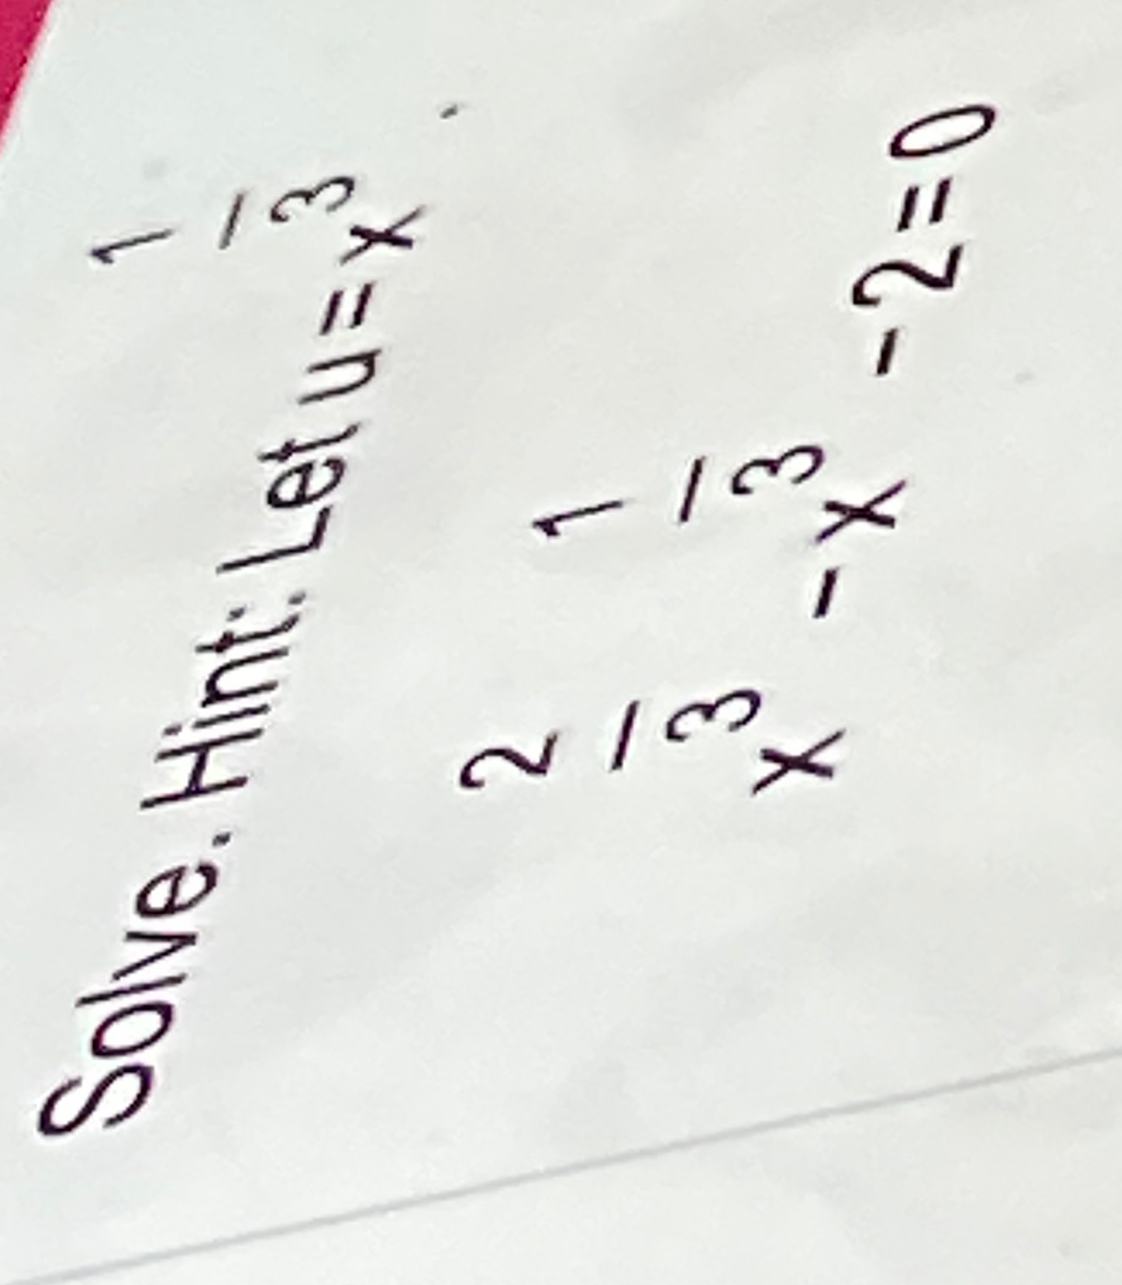 Solve. Hint: Let u = x^(1/3).
x^(2/3) - x^(1/3) - 2 = 0